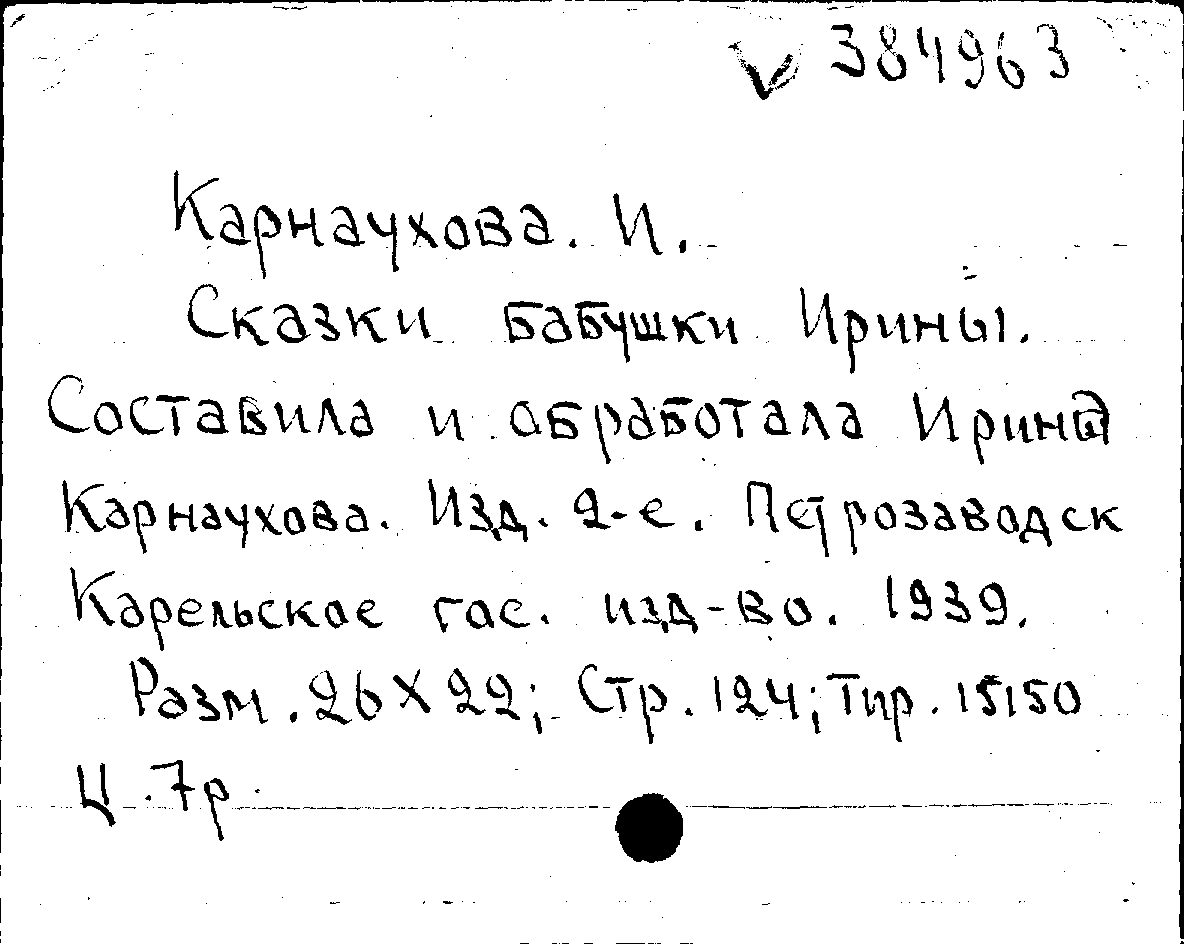 V 384963
Карнаухова. И.
Сказки бабушки Ирины.
Составила и обработала Ирина
Карнаухова. Изд. 2-е. Петрозаводск
Карельское гос. изд-во. 1939.
Разм. 26X22; Стр. 124; Тир. 15150
Ц. 7р.